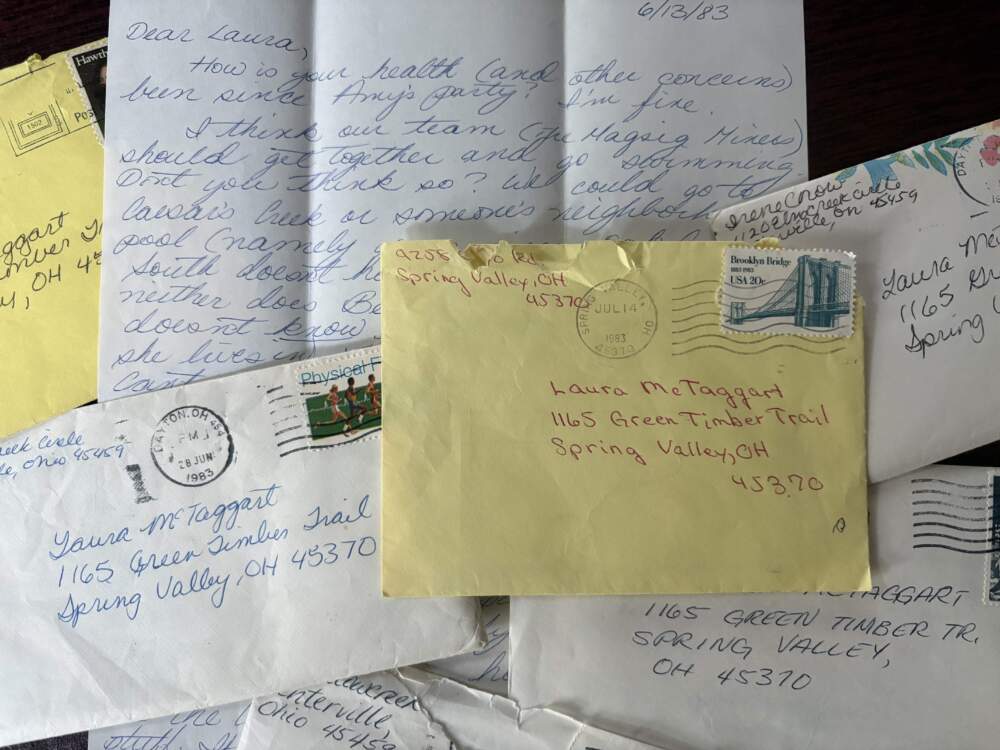 6/13/83
Dear Laura,
How is your health (and other concerns)
been since Amy's party? I'm fine.
I think our team (The Magsig Miners)
should get together and go swimming.
Don't you think so? We could go to
Caesar's Creek or someone's neighborhood
pool (namely
South doesn't
neither does
doesn't know
she lives in
Can't
Hawth
1502
Taggart
OH 45
Irene Chow
Ohio 45459
DAYT
Laura McT
1165 Gr
Spring V
Spring Valley, OH
45370
SPRING VALLEY, OH
JUL 14
1983
45370
Brooklyn Bridge
1883-1983
USA 20c
Laura McTaggart
1165 Green Timber Trail
Spring Valley, OH
45370
Physical F
eek Circle
le, Ohio 45459
DAYTON, OH 454
PM
28 JUN
1983
Laura McTaggart
1165 Green Timber Trail
Spring Valley, OH 45370
MCTAGGART
1165 GREEN TIMBER TR.
SPRING VALLEY,
OH 45370
nterville,
Ohio 45459
the
stuff.